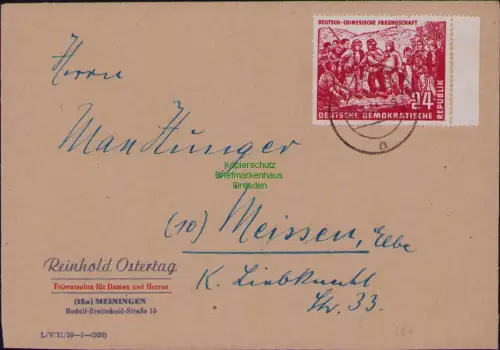 DEUTSCH-CHINESISCHE FREUNDSCHAFT
24
DEUTSCHE DEMOKRATISCHE
REPUBLIK
a
Herrn
Max Hunger
Kopierschutz
Briefmarkenhaus
Dresden
(10) Meissen, Elbe
K. Liebknecht
Str. 33.
Reinhold Ostertag
Friseursalon für Damen und Herren
(15a) MEININGEN
Rudolf-Breitscheid-Straße 15